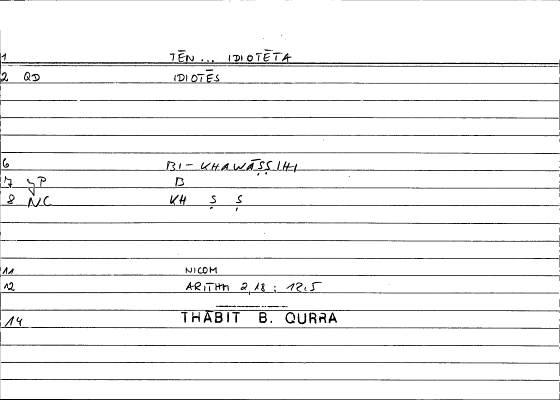 1 TĒN... IDIOTĒTA
2 QD IDIOTĒS
6 BI-KHAWĀṢṢIHI
7 yP B
8 NC KH Ṣ Ṣ
11 NICOM
12 ARITHM 2,18 : 12.5
14 THĀBIT B. QURRA